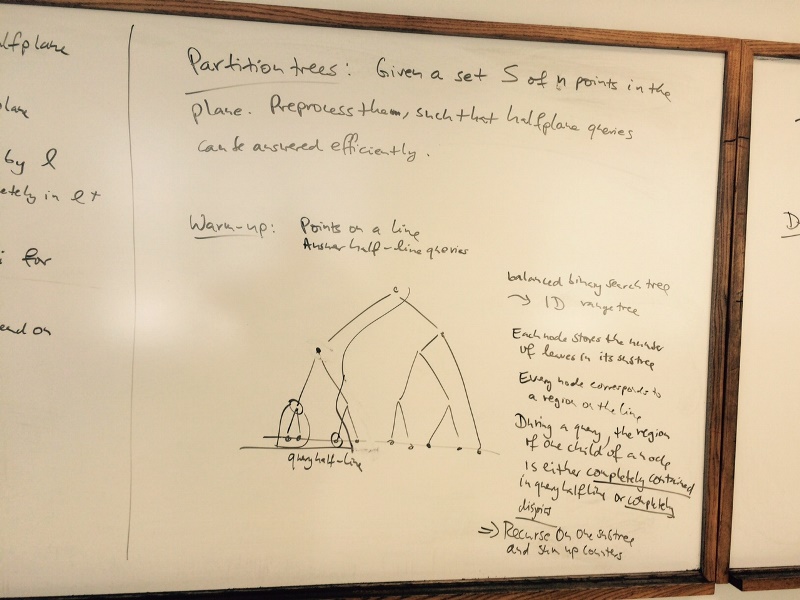 lfplane
plane
by l
etely in l+
for
end on
Partition trees: Given a set S of n points in the
plane. Preprocess them, such that halfplane queries
can be answered efficiently.
Warm-up: Points on a line
Answer half-line queries
balanced binary search tree
→ 1D range tree
Each node stores the number
of leaves in its subtree
Every node corresponds to
a region on the line
During a query, the region
of one child of a node
is either completely contained
in query halfline or completely
disjoint
⇒ Recurse on one subtree
and sum up counters
query half-line
D